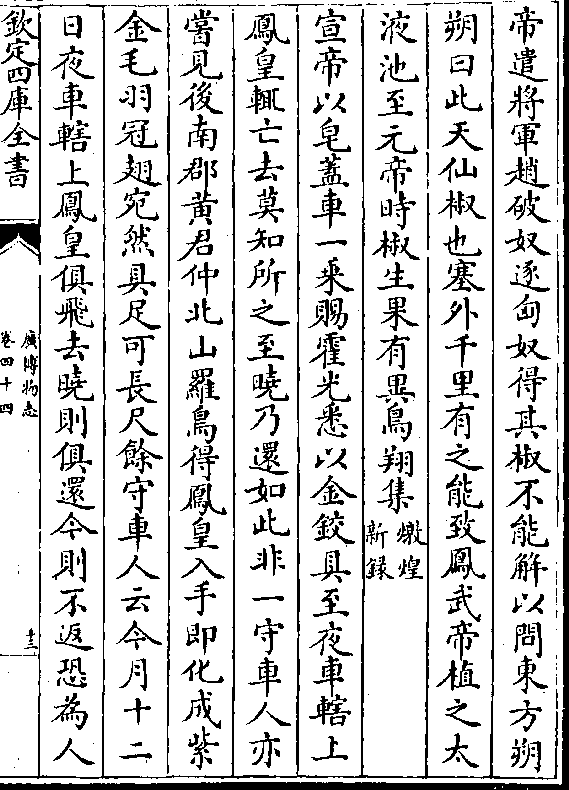 帝遣將軍趙破奴逐匈奴得其椒不能解以問東方朔
朔曰此天仙椒也塞外千里有之能致鳳武帝植之太
液池至元帝時椒生果有異鳥翔集燉煌新録
宣帝以皂蓋車一乘賜霍光悉以金鉸具至夜車轄上
鳳皇輒亡去莫知所之至曉乃還如此非一守車人亦
嘗見後南郡黃君仲北山羅鳥得鳳皇入手即化成紫
金毛羽冠翅宛然具足可長尺餘守車人云今月十二
日夜車轄上鳳皇俱飛去曉則俱還今則不返恐為人
欽定四庫全書
廣博物志
卷四十四
十三